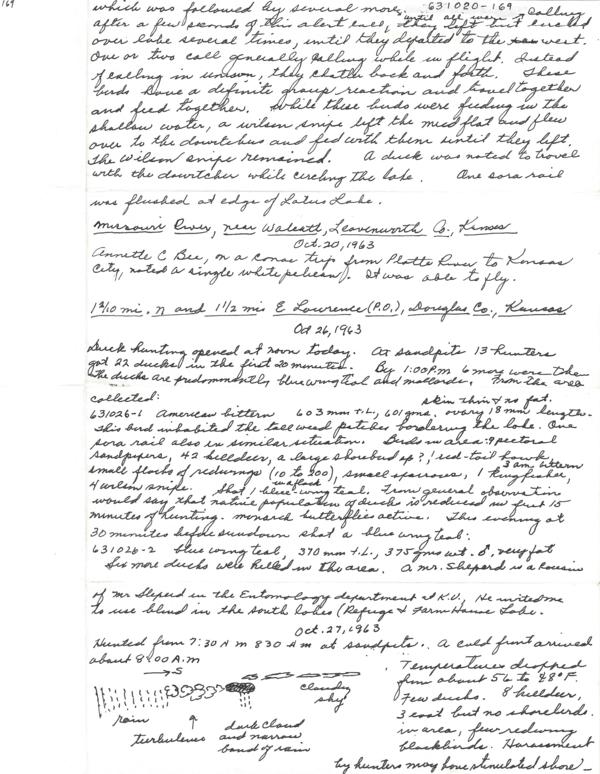 169
631020-169
which was followed by several more, until all were calling
after a few seconds of this alert call, they left but circled
over lake several times, until they departed to the west.
One or two call generally calling while in flight. Instead
of calling in unison, they chatter back and forth. These
birds have a definite group reaction and travel together
and feed together. While these birds were feeding in the
shallow water, a wilson snipe left the mud flat and flew
over to the dowitchers and fed with them until they left.
The wilson snipe remained. A duck was noted to travel
with the dowitcher while circling the lake. One sora rail
was flushed at edge of Lotus Lake.
Missouri River, near Wolcott, Leavenworth Co., Kansas
Oct. 20, 1963
Annette C Bee, on a canoe trip from Platte River to Kansas
City, noted a single white pelican. It was able to fly.
1 2/10 mi. N and 1 1/2 mis E Lawrence (P.O.), Douglas Co., Kansas
Oct 26, 1963
Duck hunting opened at noon today. At sandpits 13 hunters
got 22 ducks in the first 20 minutes. By 1:00 P.m 6 more were taken
The ducks are predominantly blue wing teal and mallards. From the area
collected: skin thin & no fat.
631026-1 American bittern 603 mm T.L., 601 gms. ovary 18 mm length.
This bird inhabited the tall weed patches bordering the lake. One
sora rail also in similar situation. Birds in area: 9 pectoral
sandpipers, 42 killdeer, a large shorebird sp?, 1 red-tail hawk,
3 am. bittern
small flocks of redwings (10 to 200), small sparrows, 1 kingfisher,
in a flock
4 wilson snipe. Shot 1 blue-wing teal. From general observation
would say that native population of ducks is reduced in first 15
minutes of hunting. monarch butterflies active. This evening at
30 minutes before sundown shot a blue wing teal:
631026-2 blue wing teal, 370 mm T.L., 375 gms wt. ♂, very fat
Six more ducks were killed in the area. A mr. Sheperd is a cousin
of Mr Sleperd in the Entomology department at K.U., He invited me
to use blind in the south lakes (Refuge & Farm House Lake.
Oct. 27, 1963
Hunted from 7:30 A m 8 30 A m at sandpits. A cold front arrived
about 8:00 A.m
→ S
rain
turbulence
dark cloud
and narrow
band of rain
cloudy
sky
. Temperatures dropped
from about 56 to 48° F.
Few ducks. 8 killdeer,
3 coot but no shorebirds.
in area, few redwing
blackbirds. Harassment
by hunters may have stimulated shore-